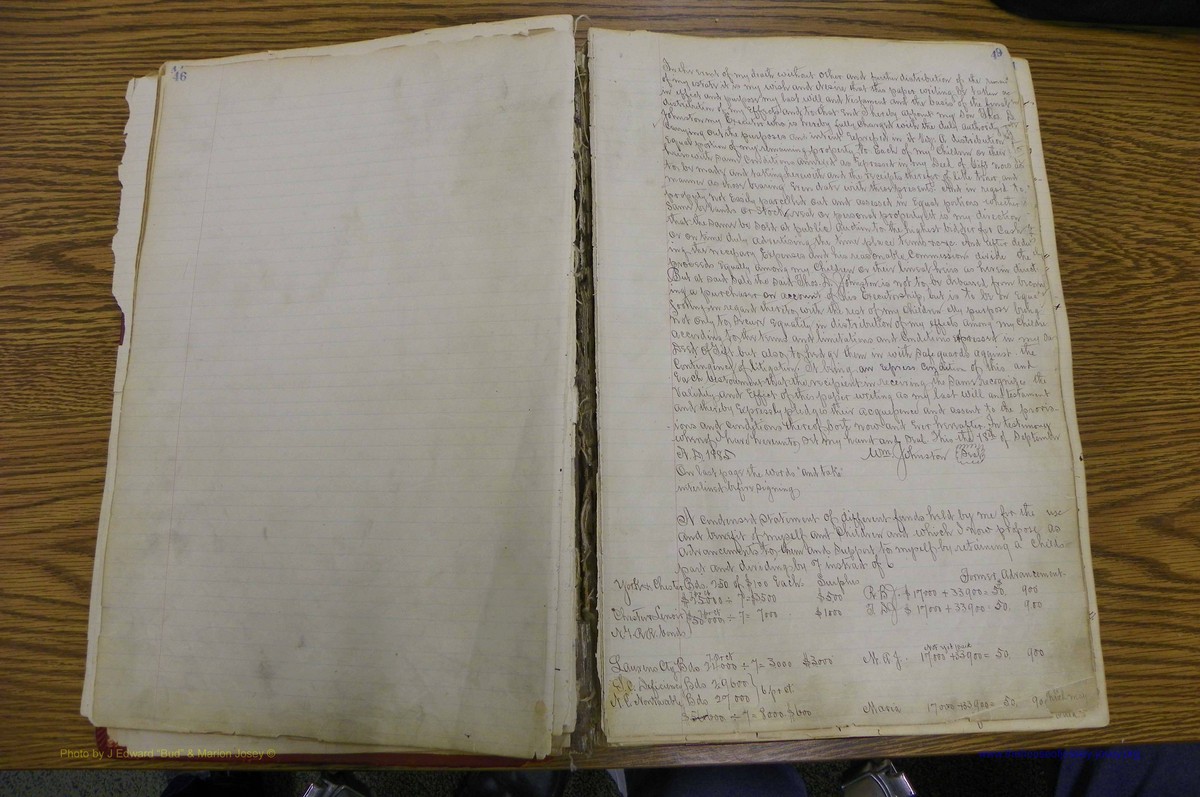 46
49
In the event of my death without other and further distribution of the
of my estate it is my wish and desire that this paper writing be taken as
in effect and purpose my last will and testament and the basis of the final
distribution of my Effects and to that End I hereby appoint my Son Thos. B.
Johnston my Executor who is hereby fully charged with the duty authority
Carrying out the purposes and intent Expressed in it
Equal portion of my remaining property to Each of my Children or their
heirs with same Conditions annexed as Expressed in my Deed of Gift now
to be made and taking therewith and the receipts therefor of like tenor and
manner as now bearing Even date with these presents And in regard to
property not Easily parcelled out and assessed in Equal portions whether
same be lands or stock, real or personal property it is my direction
that the same be Sold at public Auction to the highest bidder for Cash
or on time duly advertising the time place terms &c And after deduct
ing the necessary Expenses and his reasonable Commissions divide the
proceeds Equally among my Children or their lineal heirs as herein direct
But at said Sale the said Thos. B. Johnston is not to be debarred from becom
ing a purchaser on account of his Executorship, but is to be on Equal
footing in regard thereto with the rest of my Children My purpose being
not only to secure Equality in distribution of my Effects among my Childre
according to the terms and limitations and Conditions Expressed in my
Deed of Gift but also to put it in with Safeguards against the
Contingency of litigation it being an express Condition of this and
Each bestowment that the recipient in receiving the same recognise the
Validity and Effect of this paper writing as my last will and testament
and thereby Expressly pledge their acquiescence and assent to the provis-
ions and Conditions thereof both now and Ever hereafter. In testimony
whereof I have hereunto set my hand and seal This the 18th of September
A. D. 1885 Wm. Johnston (Seal)
On last page the words "and take"
interlined before signing
A Condensed Statement of different funds held by me for the use
and benefit of myself and Children and which I now propose as
advancements to them and Support to myself by retaining a Childs
part and dividing by 7 instead of 6
York & Chester Bds. 250 of $100 Each Surplus Former Advancement.
$25000 ÷ 7 = $3500 $500 R. B. J. $17000 + 33900 = 50. 900
Chester & Lenoir $50000 ÷ 7 = 7000 $1000 T. B. J. $17000 + 33900 = 50. 900
N. G. R. R. bond
7 pr ct
not yet paid
Laurens Cty Bds 21000 ÷ 7 = 3000 $3000 N. A. J. 17000 + 33900 = 50. 900
S. C. Deficiency Bds 29600
N. C. Nontaxable Bds 27000 } 6 pr ct
÷ 7 = 8000 $600 Maria 17000 + 33900 = 50. 900
Photo by J Edward "Bud" & Marion Josey ©